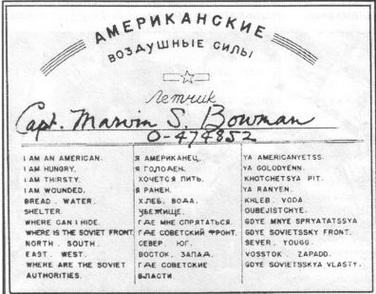 АМЕРИКАНСКИЕ
ВОЗДУШНЫЕ СИЛЫ
Летчик
Capt. Marvin S. Bowman
O-474852
I AM AN AMERICAN. Я АМЕРИКАНЕЦ. YA AMERICANYETSS.
I AM HUNGRY. Я ГОЛОДЕН. YA GOLODYENN.
I AM THIRSTY. ХОЧЕТСЯ ПИТЬ. KHOTCHETSYA PIT.
I AM WOUNDED. Я РАНЕН. YA RANYEN.
BREAD. WATER. ХЛЕБ. ВОДА. KHLEB. VODA.
SHELTER. УБЕЖИЩЕ. OUBEJISTCHYE.
WHERE CAN I HIDE. ГДЕ МНЕ СПРЯТАТЬСЯ. GDYE MNYE SPRYATATSSYA
WHERE IS THE SOVIET FRONT. ГДЕ СОВЕТСКИЙ ФРОНТ. GDYE SOVIETSSKY FRONT.
NORTH. SOUTH. СЕВЕР. ЮГ. SEVER. YOUGG.
EAST. WEST. ВОСТОК. ЗАПАД. VOSSTOK. ZAPADD.
WHERE ARE THE SOVIET ГДЕ СОВЕТСКИЕ GDYE SOVIETSSKYA VLASTY.
AUTHORITIES. ВЛАСТИ